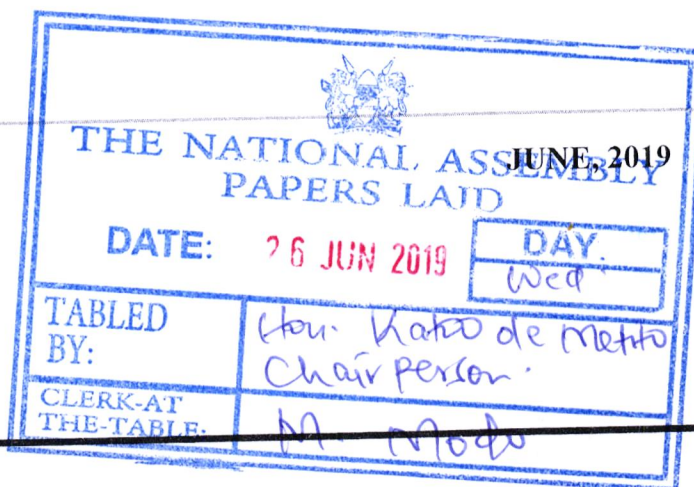 THE NATIONAL ASSEMBLY
JUNE, 2019
PAPERS LAID
DATE: 26 JUN 2019
DAY.
Wed
TABLED BY:
Hon. Katoo de Metito
Chairperson.
CLERK-AT THE-TABLE:
M. Modo